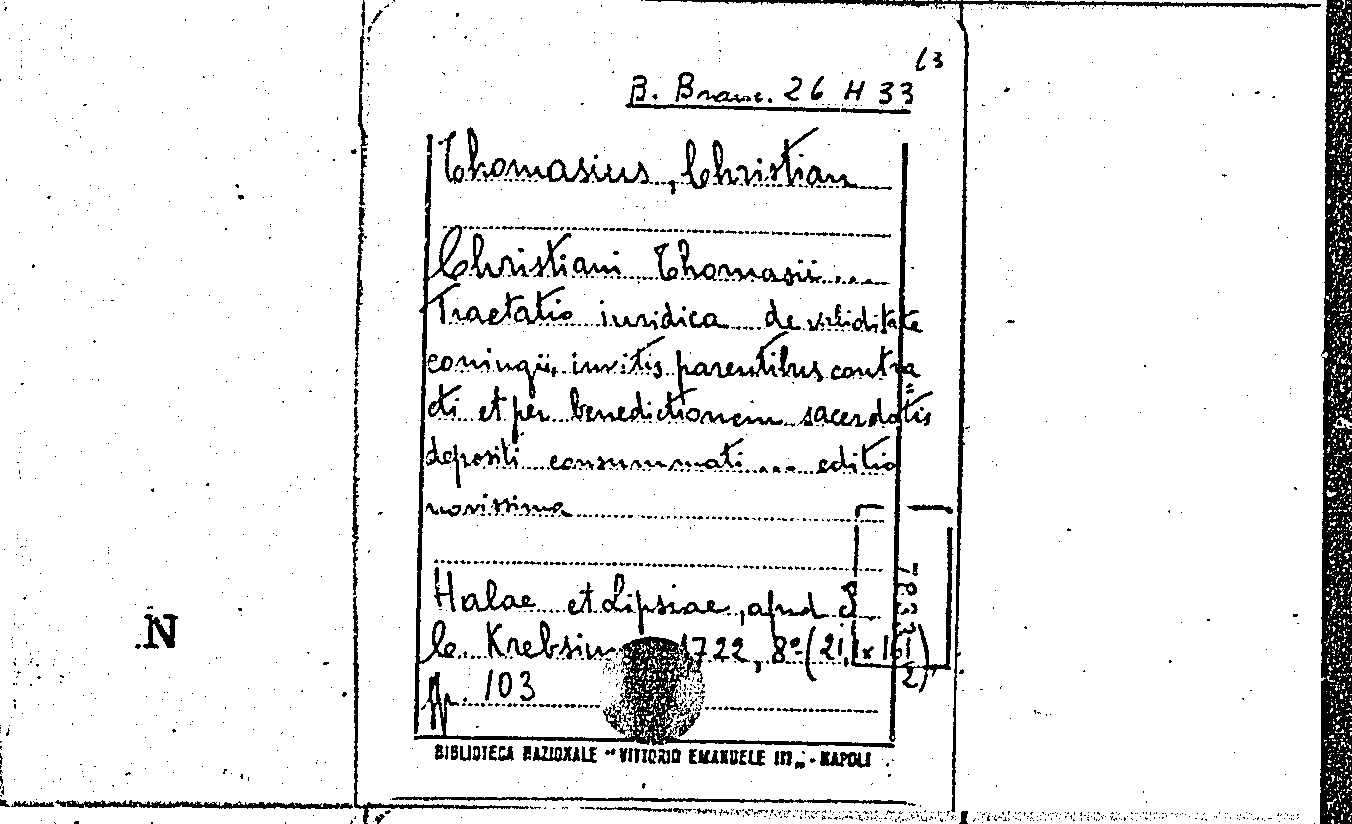 63
B. Branc. 26 H 33
Thomasius, Christian
Christiani Thomasii...
Tractatio iuridica de validitate
coniugii, invitis parentibus contra
cti et per benedictionem sacerdotis
depositi consummati ... editio
novissima
Halae et Lipsiae, apud J
C. Krebsium 1722, 8º (21,1x161)
pp. 103
7833
2
N
BIBLIOTECA NAZIONALE "VITTORIO EMANUELE III" - NAPOLI